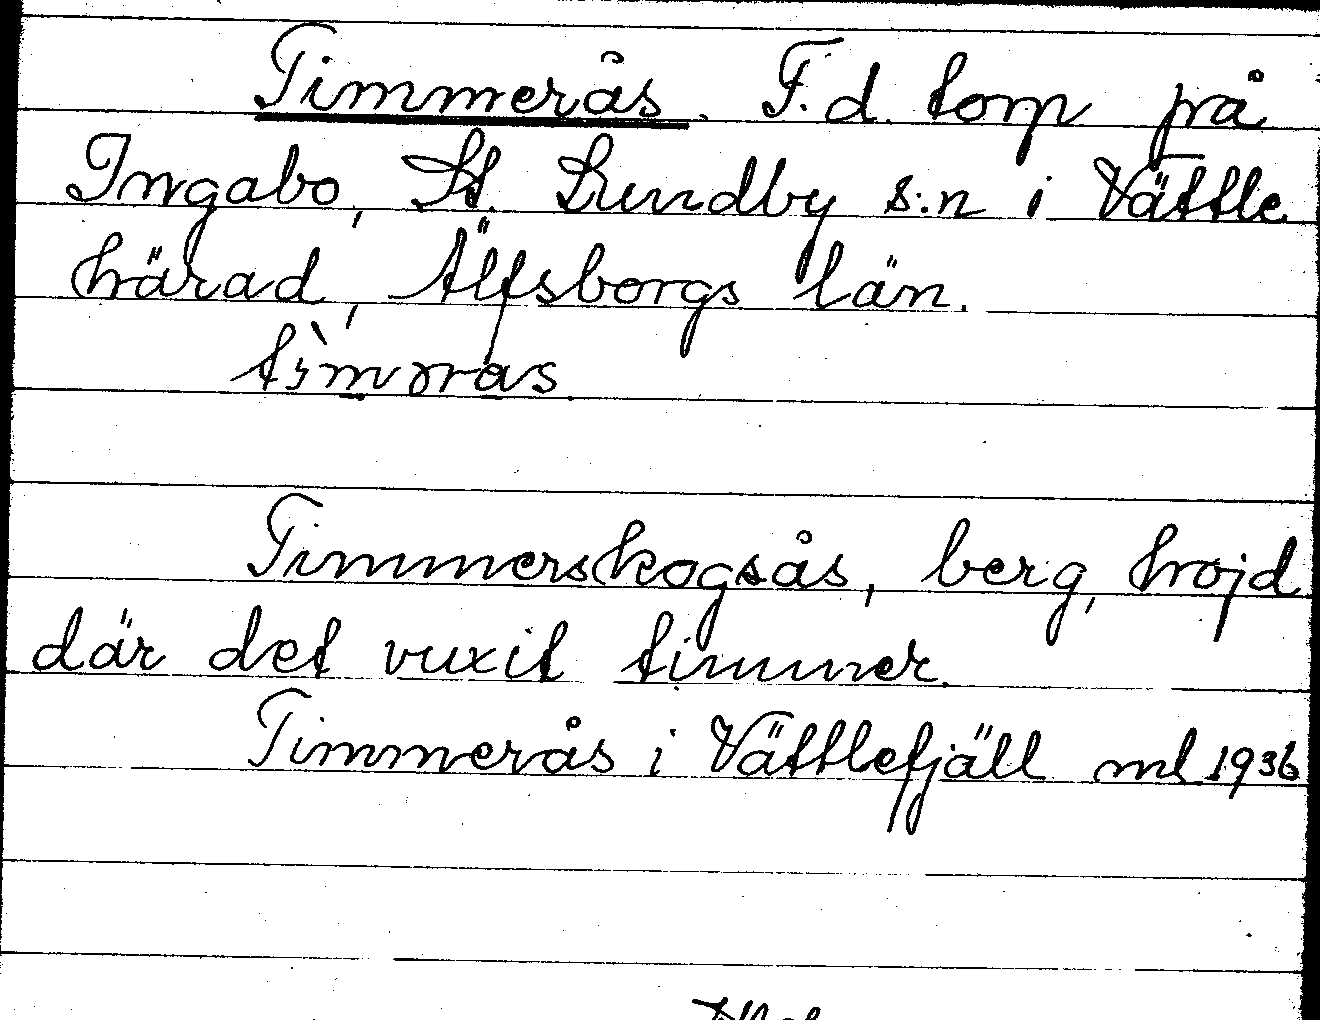 Timmerås. F.d. torp på
Ingabo, St. Lundby s:n i Vättle
härad, Älfsborgs län.
Timmerskogsås, berg, höjd
där det vuxit timmer.
Timmerås i Vättlefjäll ml 1936